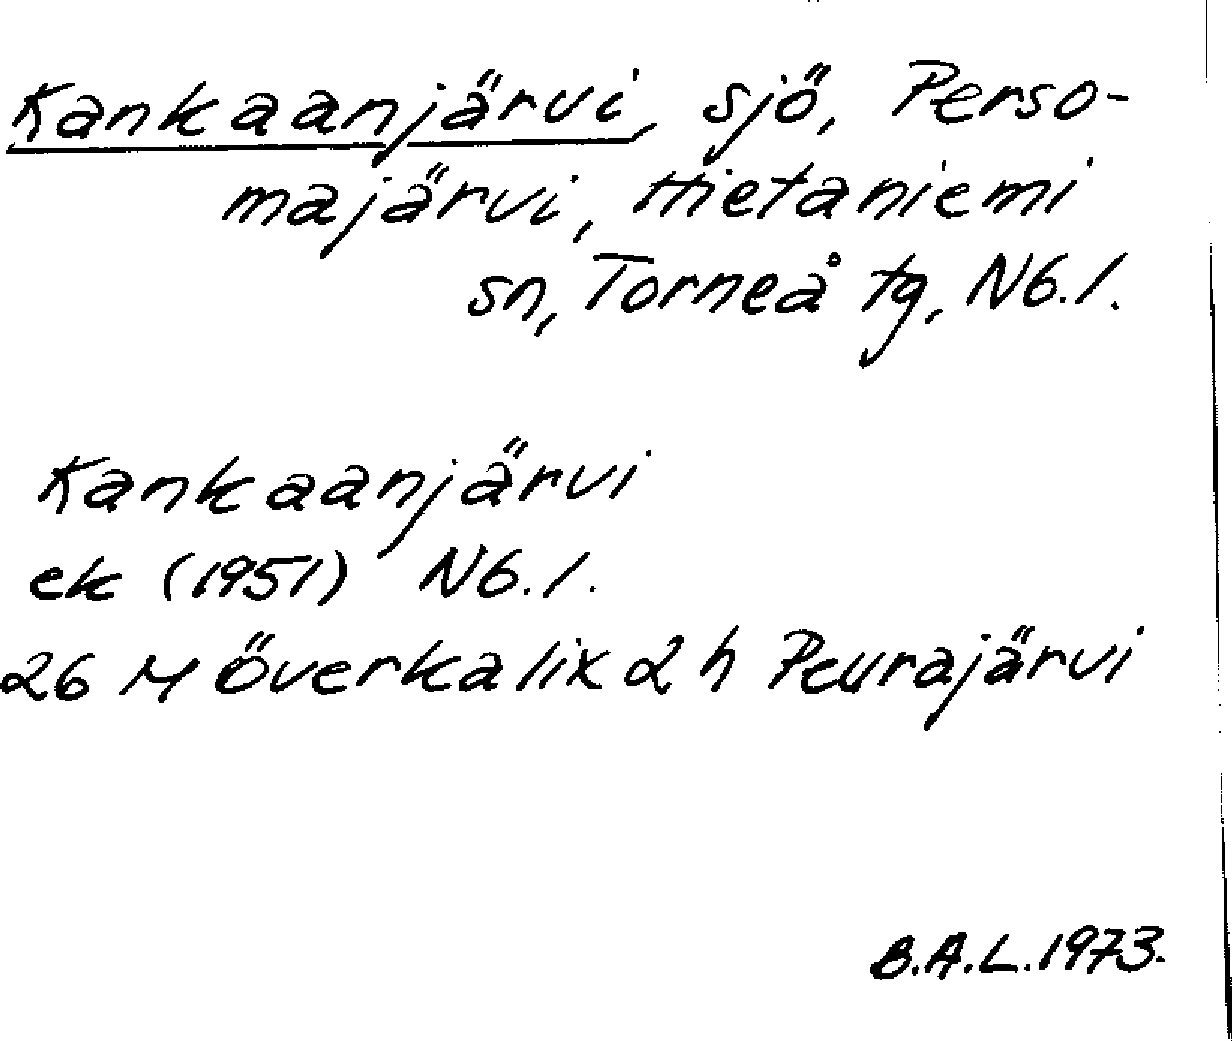 Kankaanjärvi, sjö, Perso-
majärvi, Hietaniemi
sn, Torneå tg, Nb.l.
Kankaanjärvi
ek (1951) Nb.l.
26 M Överkalix 2 h Peurajärvi
B.A.L. 1973.